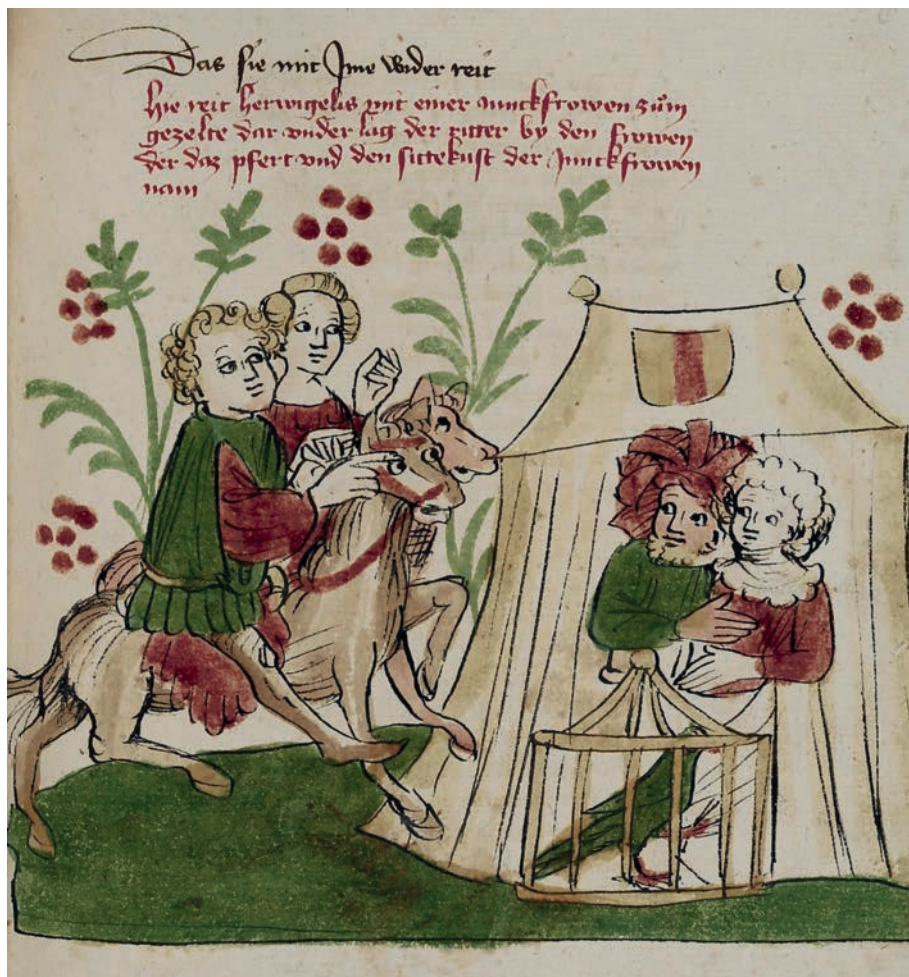 Das sie mit Jme wider reit
Hie reit herwigelis mit einer junckfrowen zům
gezelte dar vnder lag der ritter by den frowen
der daz pfert vnd den sittekust der junckfrowen
nam